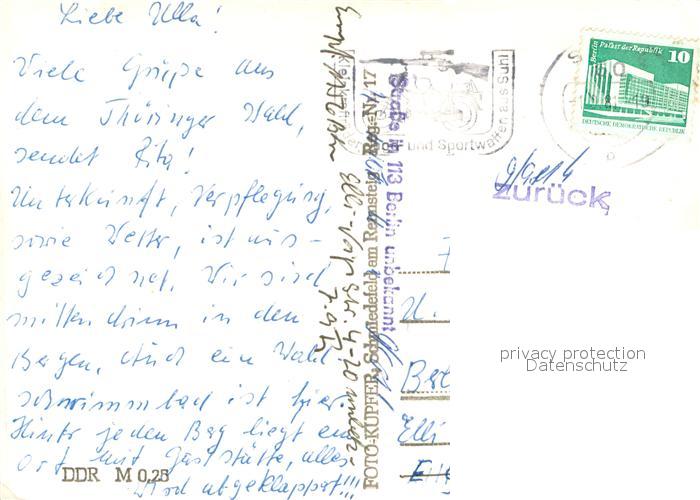 Liebe Ulla!
Viele Grüße aus
dem Thüringer Wald,
sendet Rita!
Unterkunft, Verpflegung,
sowie Wetter, ist aus-
gezeichnet. Wir sind
mittendrin in den
Bergen. Auch ein Wald
schwimmbad ist hier.
Hinter jeden Berg liegt ein
Ort mit Gaststätte, alles
wird abgeklappert!!!
DDR M 0,25
FOTO-KUPFER, Schmiedefeld am Rennsteig Reg.-Nr. 17
Straße in 113 Berlin unbekannt
und Sportwaffen aus Suhl
Berlin Palast der Republik
10
DEUTSCHE DEMOKRATISCHE REPUBLIK
zurück
U.
Elli
privacy protection
Datenschutz